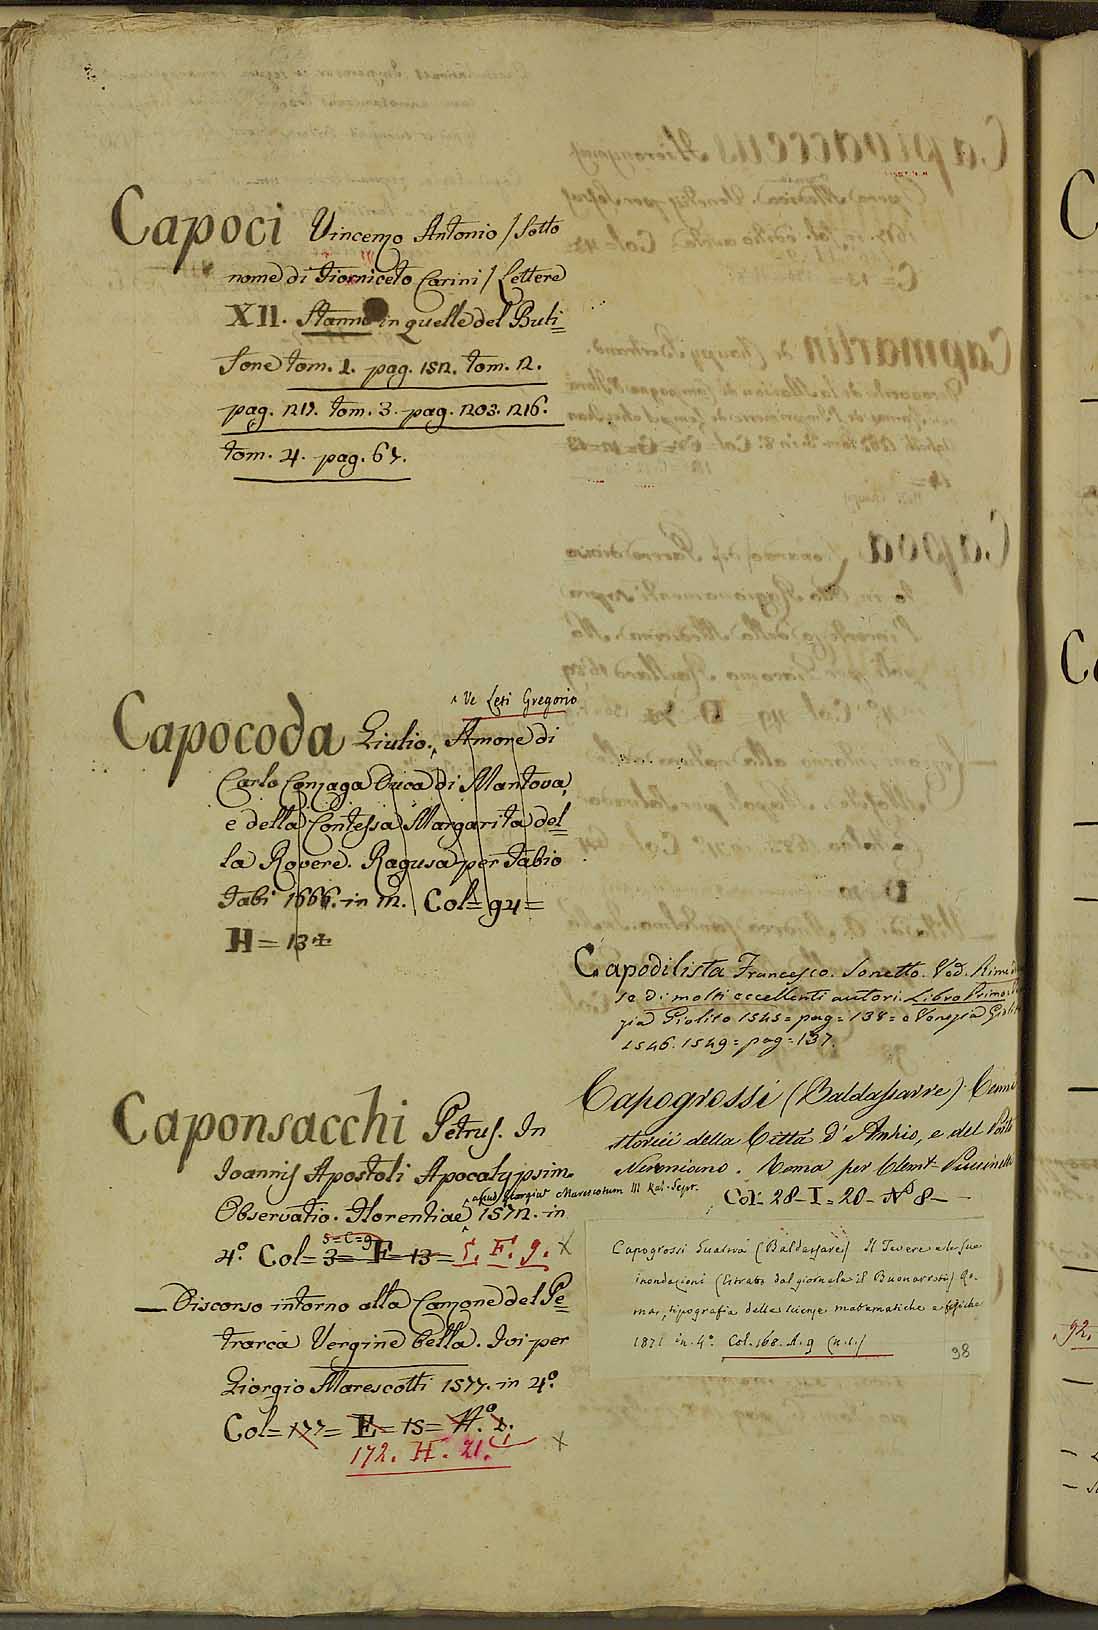 Capoci Vincenzo Antonio / Sotto
nome di Fiorniceto Carini / Lettere
XII. Stanno in quelle del Buli=
fone tom. 1. pag. 152. tom. 2.
pag. 217. tom. 3. pag. 203. 216.
tom. 4. pag. 67.
^ Ve Leti Gregorio
Capocoda Giulio. Amore di
Carlo Gonzaga Duca di Mantova,
e della Contessa Margarita del=
la Rovere. Ragusa per Fabio
Fabi 1666. in 12. Col= 94=
H= 13
Caponsacchi Petrus. In
Joannis Apostoli Apocalypsim
apud Georgium Marescotum III Kal. Sept.
Observatio. Florentiae 1572. in
5=C=9
4.° Col= 3= F= 13= 5. F. 9. X
— Discorso intorno alla Canzone del Pe=
trarca Vergine bella. Ivi per
Giorgio Marescotti 1577. in 4.°
Col= 177= E= 15= N.° 2.
172. H. 21. X
Capodilista Francesco. Sonetto. Ved. Rime
se di molti eccellenti autori. Libro Primo.
zia Giolito 1545= pag= 138= e Venezia
1546. 1549= pag= 137.
Capogrossi (Baldassarre) Cenni
storici della Città d'Anzio, e del Porto
Neroniano. Roma per Clem.t Puccinelli
Col- 28- I- 20- N° 8-
Capogrossi Guarna (Baldassare) Il Tevere e le sue
inondazioni (Estratto dal giornale il Buonarroti) Ro-
ma, tipografia delle scienze matematiche e fisiche
1871 in 4.° Col. 168. A. 9 (n. 1.)
98
92.